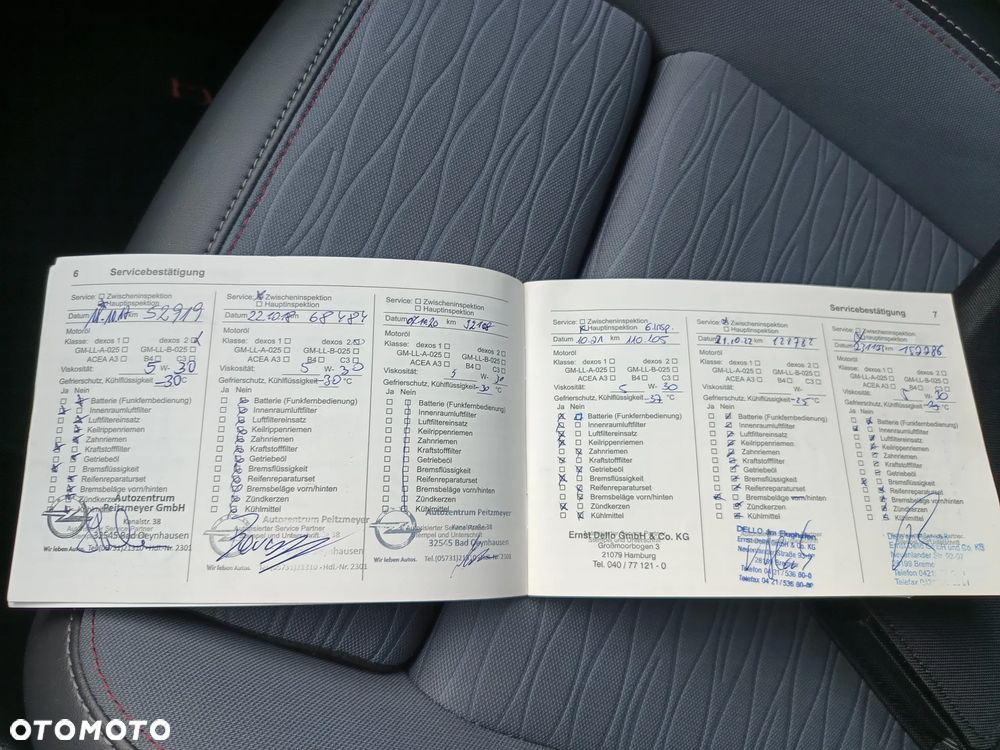 6 Servicebestätigung
Service: Zwischeninspektion
Hauptinspektion
Datum km 52919
Motoröl
Klasse: dexos 1 dexos 2
GM-LL-A-025 GM-LL-B-025
ACEA A3 B4 C3
Viskosität: 5 W- 30
Gefrierschutz, Kühlflüssigkeit -30 °C
Ja Nein
Batterie (Funkfernbedienung)
Innenraumluftfilter
Luftfiltereinsatz
Keilrippenriemen
Zahnriemen
Kraftstofffilter
Getriebeöl
Bremsflüssigkeit
Reifenreparaturset
Bremsbeläge vorn/hinten
Zündkerzen
Autozentrum
Peitzmeyer GmbH
Kanalstr. 38
32545 Bad Oeynhausen
Wir leben Autos. Tel. (05731)21310 - Hdl.-Nr. 2301
Service: Zwischeninspektion
Hauptinspektion
Datum 22.10.18 km 68484
Motoröl
Klasse: dexos 1 dexos 2
GM-LL-A-025 GM-LL-B-025
ACEA A3 B4 C3
Viskosität: 5 W- 30
Gefrierschutz, Kühlflüssigkeit -30 °C
Ja Nein
Batterie (Funkfernbedienung)
Innenraumluftfilter
Luftfiltereinsatz
Keilrippenriemen
Zahnriemen
Kraftstofffilter
Getriebeöl
Bremsflüssigkeit
Reifenreparaturset
Bremsbeläge vorn/hinten
Zündkerzen
Kühlmittel
Autozentrum Peitzmeyer
Wir leben Autos. Tel. (05731)21310 - Hdl.-Nr. 2301
Service: Zwischeninspektion
Hauptinspektion
Datum km
Motoröl
Klasse: dexos 1 dexos 2
GM-LL-A-025 GM-LL-B-025
ACEA A3 B4 C3
Viskosität: 5 W- 30
Gefrierschutz, Kühlflüssigkeit -30 °C
Ja Nein
Batterie (Funkfernbedienung)
Innenraumluftfilter
Luftfiltereinsatz
Keilrippenriemen
Zahnriemen
Kraftstofffilter
Getriebeöl
Bremsflüssigkeit
Reifenreparaturset
Bremsbeläge vorn/hinten
Zündkerzen
Kühlmittel
Autozentrum Peitzmeyer
Kanalstraße 38
32545 Bad Oeynhausen
Wir leben Autos. Tel. (05731)21310 - Hdl.-Nr. 2301
Servicebestätigung 7
Service: Zwischeninspektion
Hauptinspektion
Datum km 110.105
Motoröl
Klasse: dexos 1 dexos 2
GM-LL-A-025 GM-LL-B-025
ACEA A3 B4 C3
Viskosität: 5 W- 30
Gefrierschutz, Kühlflüssigkeit -37 °C
Ja Nein
Batterie (Funkfernbedienung)
Innenraumluftfilter
Luftfiltereinsatz
Keilrippenriemen
Zahnriemen
Kraftstofffilter
Getriebeöl
Bremsflüssigkeit
Reifenreparaturset
Bremsbeläge vorn/hinten
Zündkerzen
Kühlmittel
Ernst Dello GmbH & Co. KG
Großmoorbogen 3
21079 Hamburg
Tel. 040 / 77 121 - 0
Service: Zwischeninspektion
Hauptinspektion
Datum 21.10.22 km
Motoröl
Klasse: dexos 1 dexos 2
GM-LL-A-025 GM-LL-B-025
ACEA A3 B4 C3
Viskosität: 5 W- 30
Gefrierschutz, Kühlflüssigkeit -25 °C
Ja Nein
Batterie (Funkfernbedienung)
Innenraumluftfilter
Luftfiltereinsatz
Keilrippenriemen
Zahnriemen
Kraftstofffilter
Getriebeöl
Bremsflüssigkeit
Reifenreparaturset
Bremsbeläge vorn/hinten
Zündkerzen
Kühlmittel
DELLO am Flughafen
Ernst Dello GmbH & Co. KG
Neuenlander Straße
Telefon 04 21 / 536 60-0
Service: Zwischeninspektion
Hauptinspektion
Datum km
Motoröl
Klasse: dexos 1 dexos 2
GM-LL-A-025 GM-LL-B-025
ACEA A3 B4 C3
Viskosität: 5 W- 30
Gefrierschutz, Kühlflüssigkeit °C
Ja Nein
Batterie (Funkfernbedienung)
Innenraumluftfilter
Luftfiltereinsatz
Keilrippenriemen
Zahnriemen
Kraftstofffilter
Getriebeöl
Bremsflüssigkeit
Reifenreparaturset
Bremsbeläge vorn/hinten
Zündkerzen
Kühlmittel
OTOMOTO